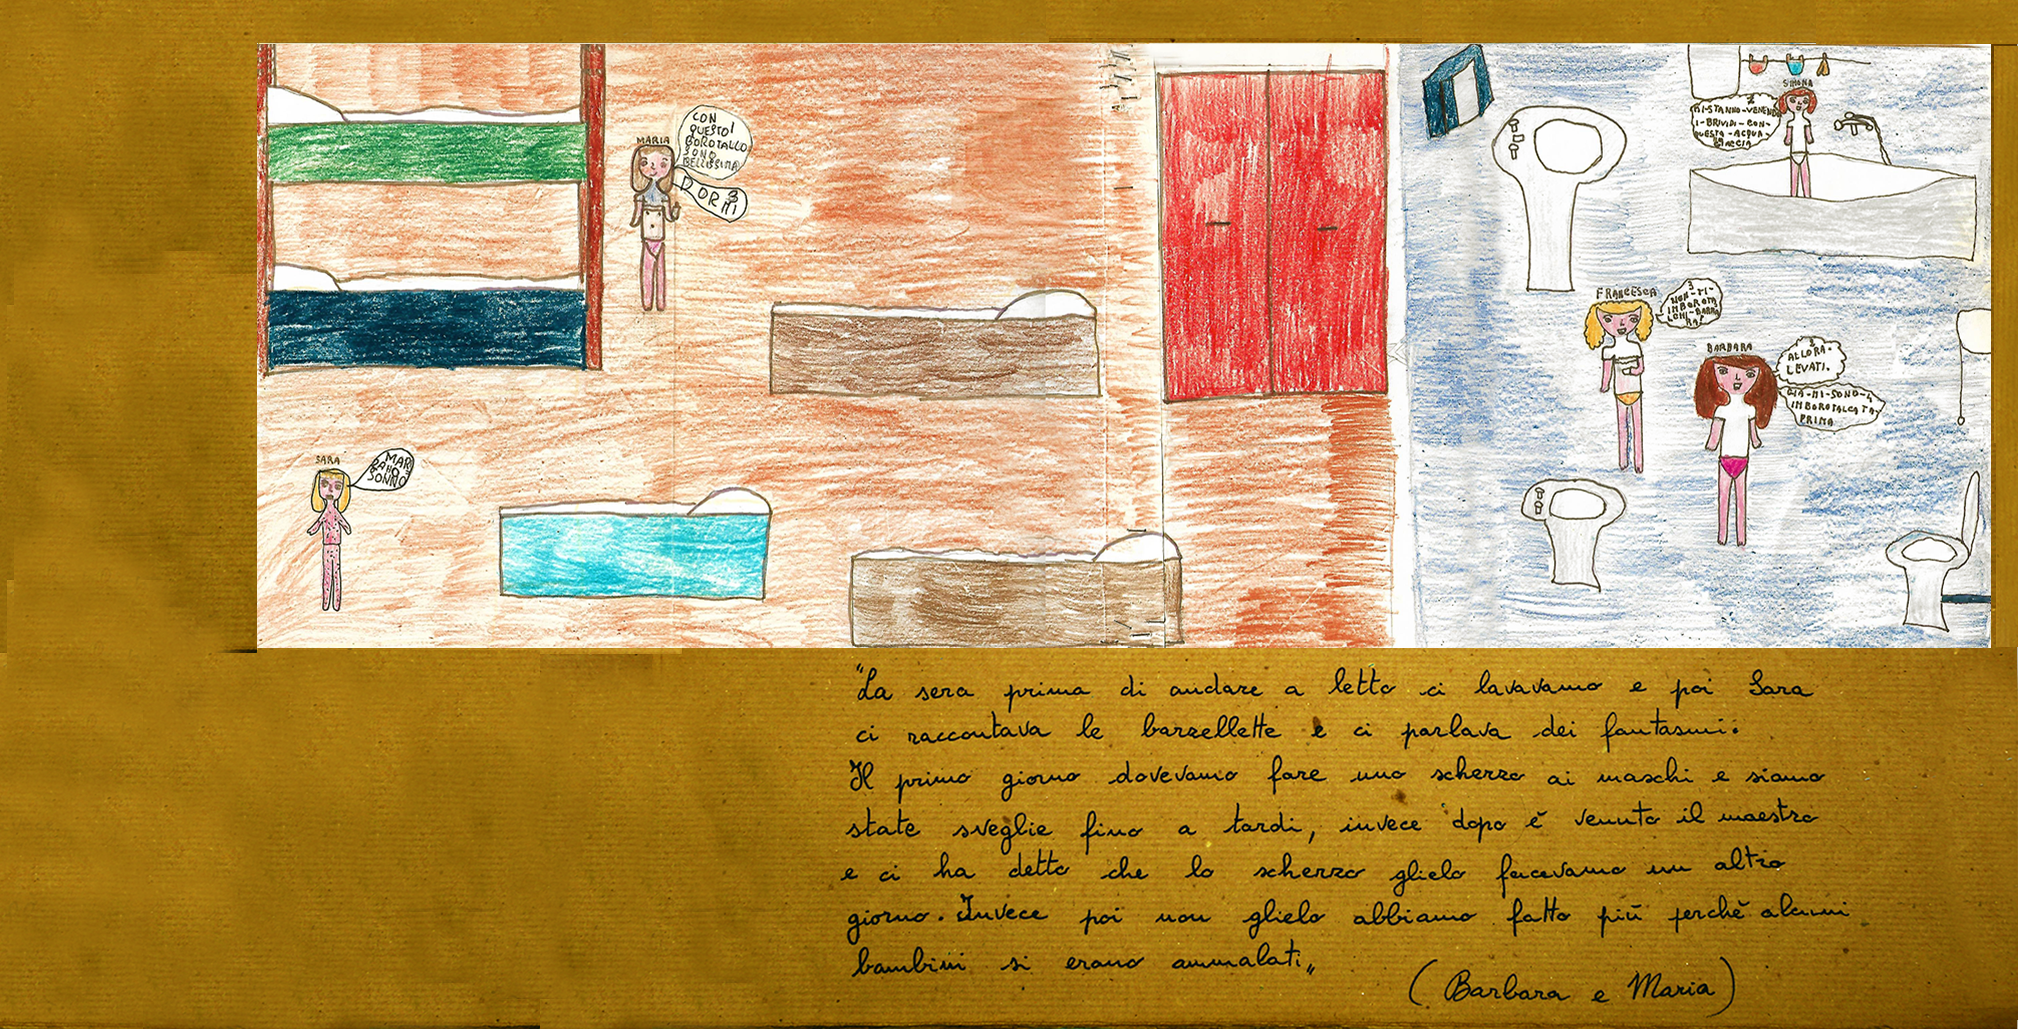 MARIA
CON
QUESTO
BOROTALLO
SONO
BELLISSIMA
DORMI
SARA
SONNO
SIMONA
MI-STANNO-VENENDO
I-BRIVIDI-CON-
QUESTA-ACQUA-
GIACCIA
FRANCESCA
NON-TI-
IMBOROTA
LCHI-BARBA
RA!
BARBARA
ALLORA-
LEVATI.
GIA-MI-SONO-
IMBOROTALCATA-
PRIMA
"La sera prima di andare a letto ci lavavamo e poi Sara
ci raccontava le barzellette e ci parlava dei fantasmi.
Il primo giorno dovevamo fare uno scherzo ai maschi e siamo
state sveglie fino a tardi, invece dopo è venuto il maestro
e ci ha detto che lo scherzo glielo facevamo un altro
giorno. Invece poi non glielo abbiamo fatto più perchè alcuni
bambini si erano ammalati„
(Barbara e Maria)